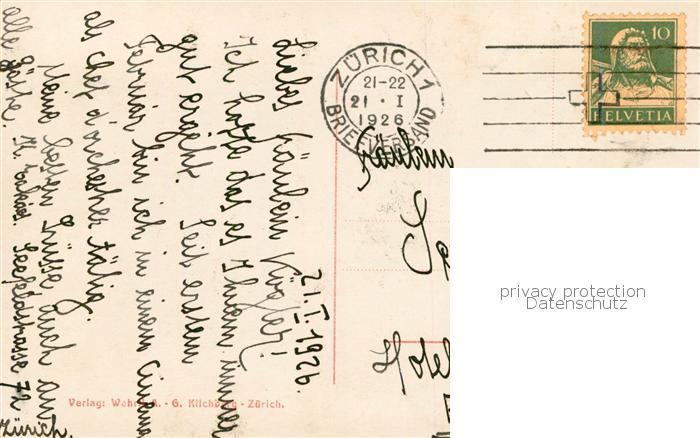 21.I.1926.
Liebes Fräulein Kugler!
Ich hoffe das es Ihnen immer
gut ergeht. Seit erstem
Februar bin ich in einem Cinema
als chef d'orchester tätig.
Meine besten Grüsse auch an
alle Gäste.
Seefeldstrasse 72
Zürich.
ZÜRICH 1
21-22
21 · I
1926
BRIEFVERSAND
10
HELVETIA
Fräulein
Hotel
Verlag: A. - G. Kilchberg - Zürich.
privacy protection
Datenschutz